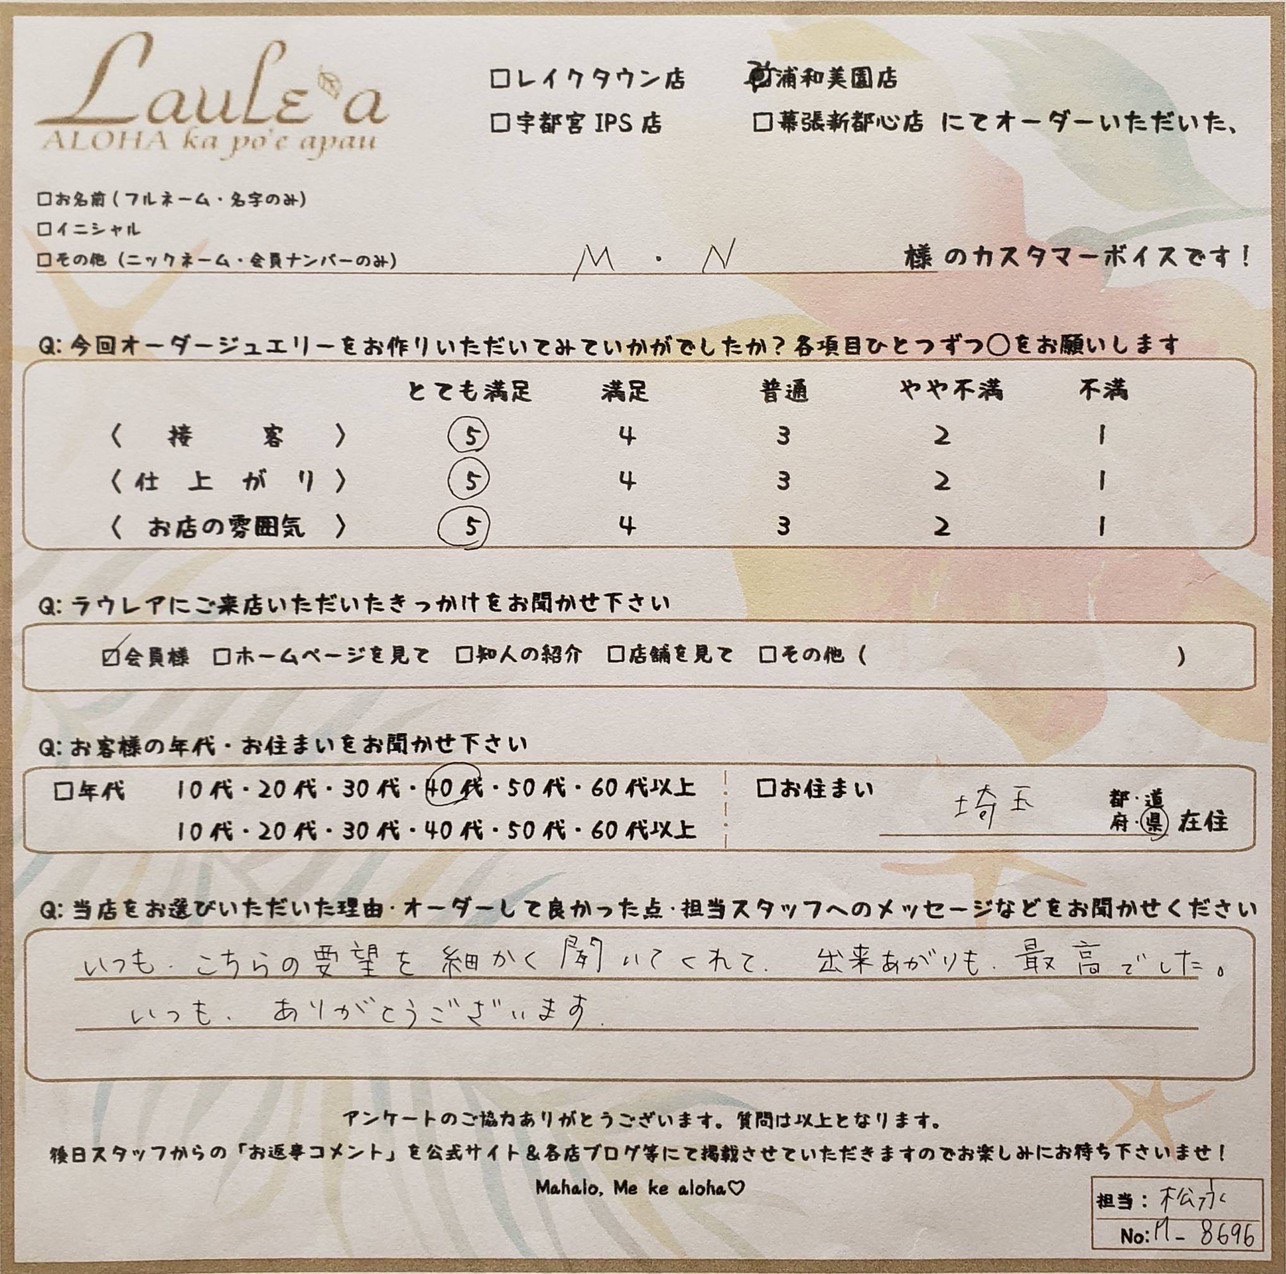 Laule'a
ALOHA ka po'e apau
□レイクタウン店 ☑浦和美園店
□宇都宮 IPS 店 □幕張新都心店 にてオーダーいただいた、
□お名前(フルネーム・名字のみ)
□イニシャル
□その他(ニックネーム・会員ナンバーのみ) M・N 様のカスタマーボイスです!
Q:今回オーダージュエリーをお作りいただいてみていかがでしたか?各項目ひとつずつ○をお願いします
とても満足 満足 普通 やや不満 不満
〈 接 客 〉 5 4 3 2 1
〈 仕 上 が り 〉 5 4 3 2 1
〈 お店の雰囲気 〉 5 4 3 2 1
Q:ラウレアにご来店いただいたきっかけをお聞かせ下さい
☑会員様 □ホームページを見て □知人の紹介 □店舗を見て □その他( )
Q:お客様の年代・お住まいをお聞かせ下さい
□年代 10代・20代・30代・40代・50代・60代以上 □お住まい 埼玉 都・道
10代・20代・30代・40代・50代・60代以上 府・県 在住
Q:当店をお選びいただいた理由・オーダーして良かった点・担当スタッフへのメッセージなどをお聞かせください
いつも、こちらの要望を細かく聞いてくれて、出来あがりも、最高でした。
いつも、ありがとうございます。
アンケートのご協力ありがとうございます。質問は以上となります。
後日スタッフからの「お返事コメント」を公式サイト&各店ブログ等にて掲載させていただきますのでお楽しみにお待ち下さいませ!
Mahalo, Me ke aloha♡
担当:松永
No:M-8696